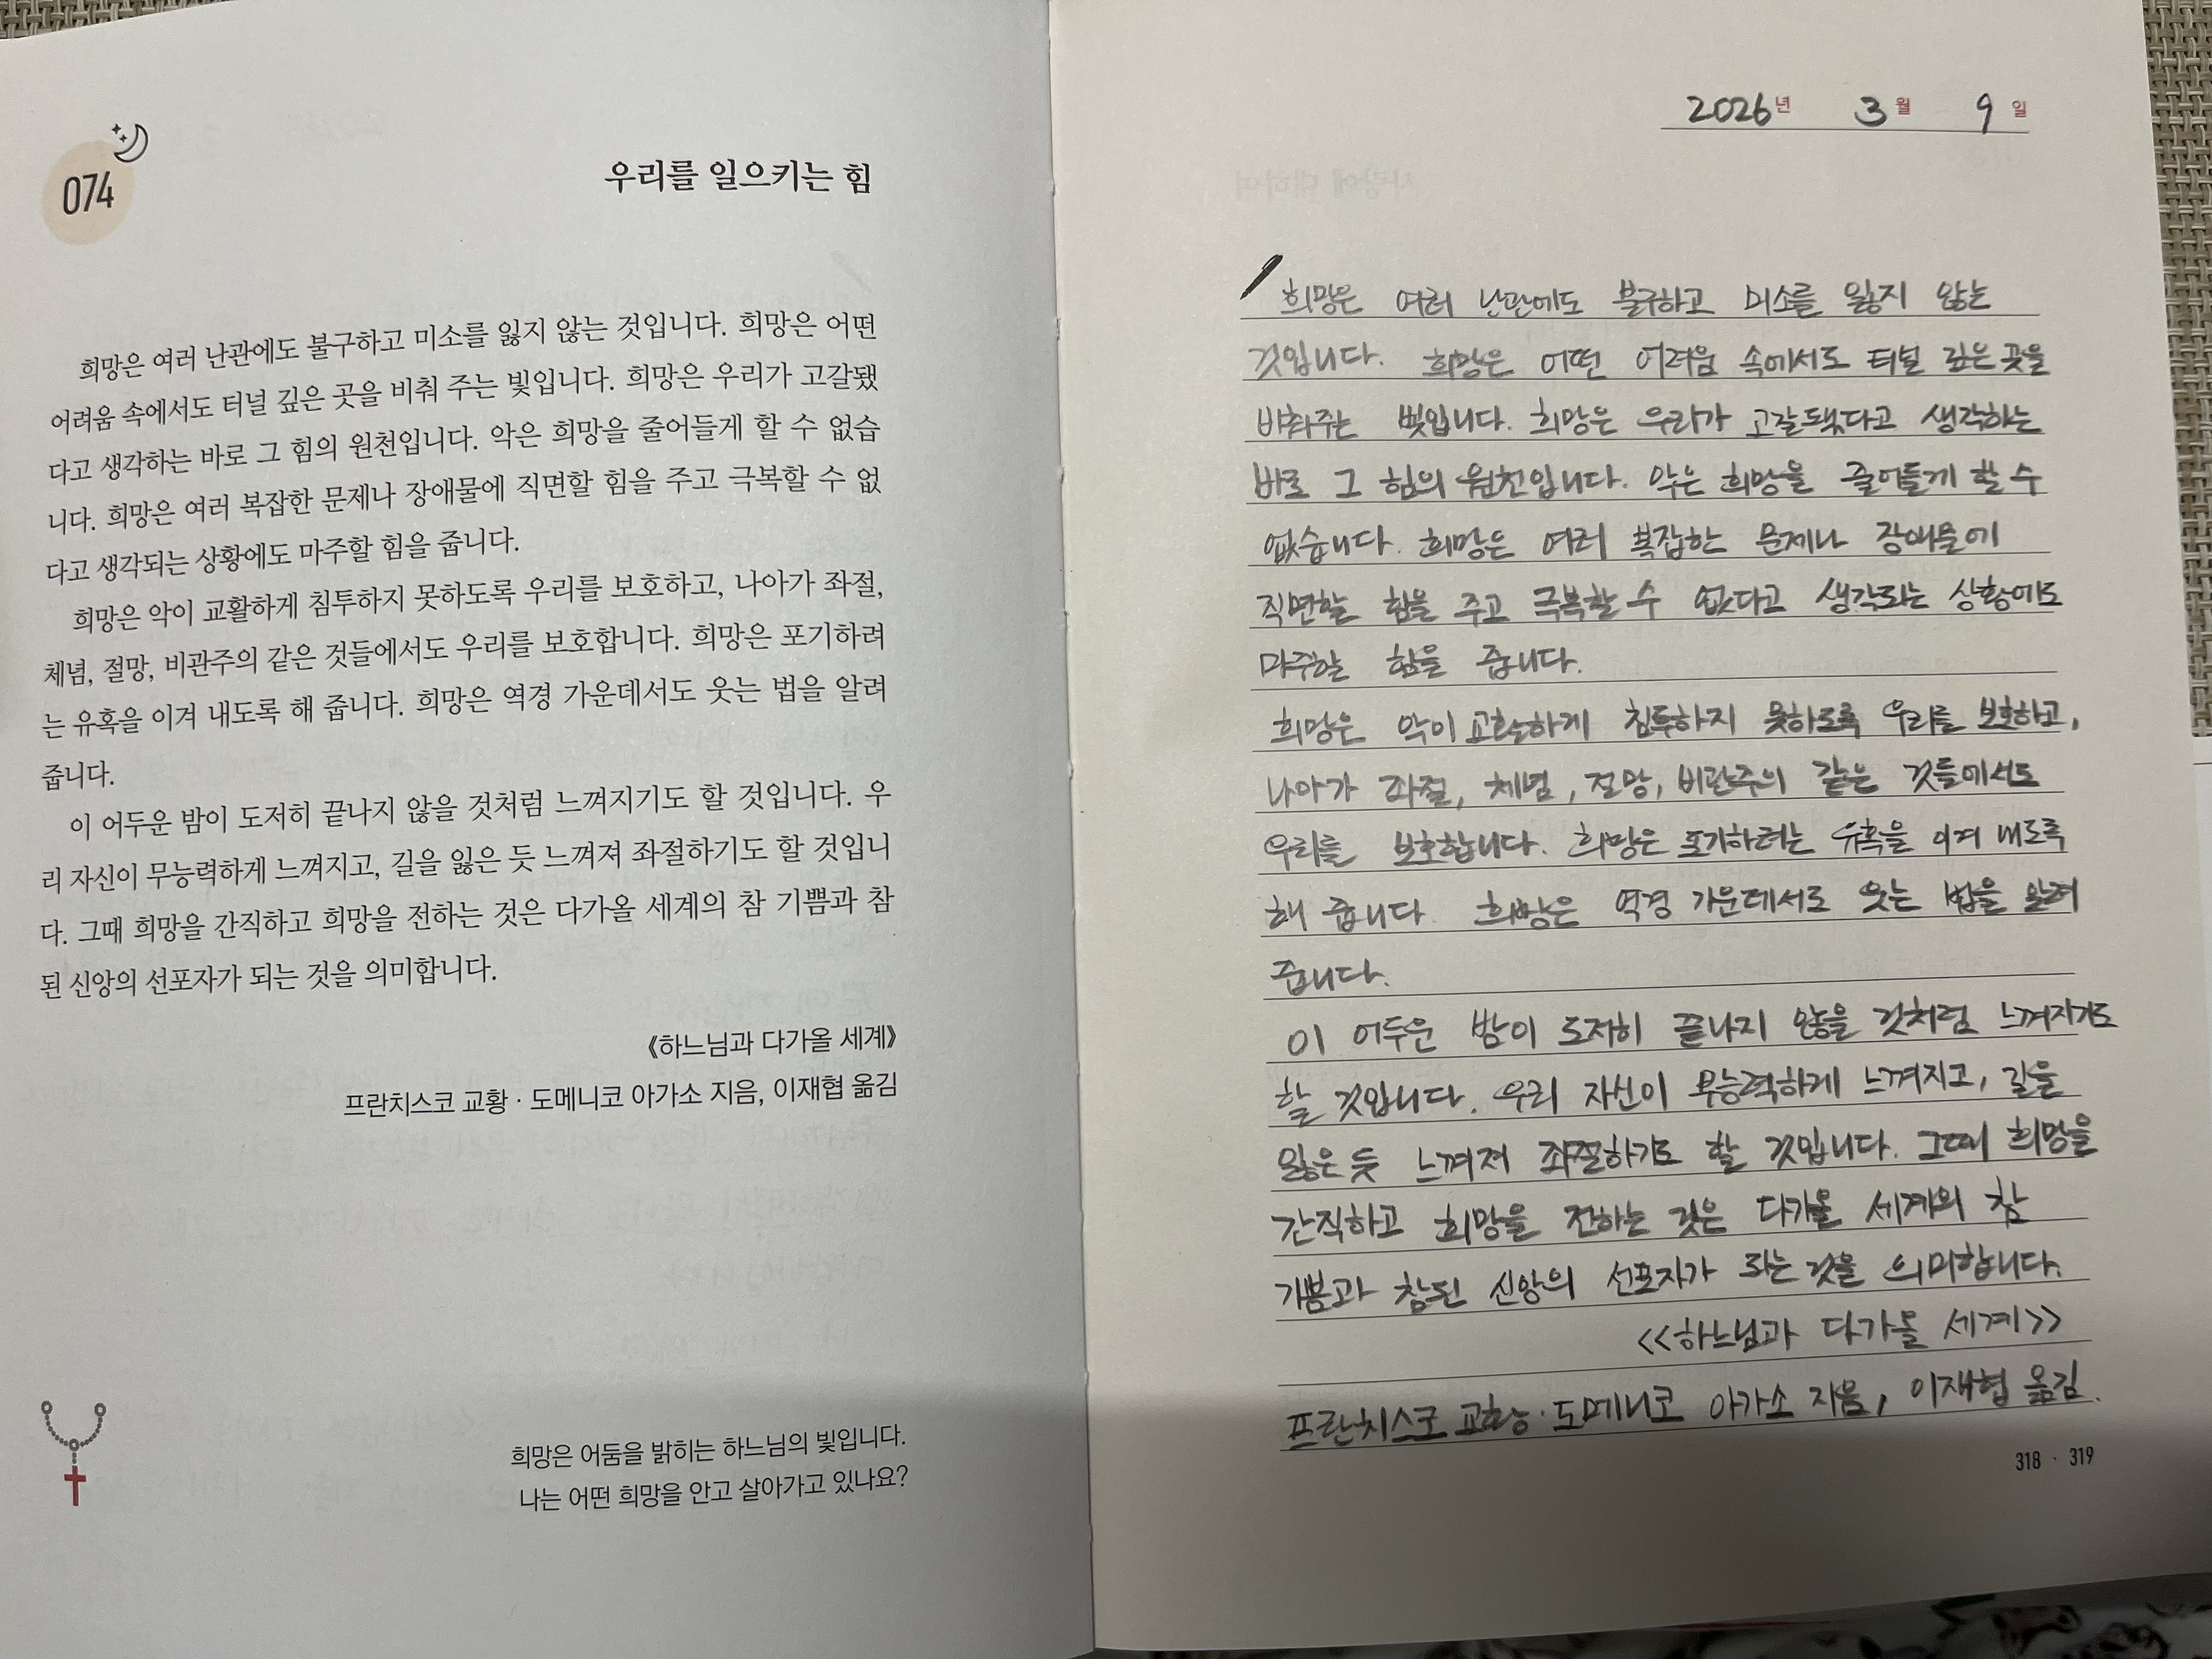 074
우리를 일으키는 힘
희망은 여러 난관에도 불구하고 미소를 잃지 않는 것입니다. 희망은 어떤
어려움 속에서도 터널 깊은 곳을 비춰 주는 빛입니다. 희망은 우리가 고갈됐
다고 생각하는 바로 그 힘의 원천입니다. 악은 희망을 줄어들게 할 수 없습
니다. 희망은 여러 복잡한 문제나 장애물에 직면할 힘을 주고 극복할 수 없
다고 생각되는 상황에도 마주할 힘을 줍니다.
희망은 악이 교활하게 침투하지 못하도록 우리를 보호하고, 나아가 좌절,
체념, 절망, 비관주의 같은 것들에서도 우리를 보호합니다. 희망은 포기하려
는 유혹을 이겨 내도록 해 줍니다. 희망은 역경 가운데서도 웃는 법을 알려
줍니다.
이 어두운 밤이 도저히 끝나지 않을 것처럼 느껴지기도 할 것입니다. 우
리 자신이 무능력하게 느껴지고, 길을 잃은 듯 느껴져 좌절하기도 할 것입니
다. 그때 희망을 간직하고 희망을 전하는 것은 다가올 세계의 참 기쁨과 참
된 신앙의 선포자가 되는 것을 의미합니다.
《하느님과 다가올 세계》
프란치스코 교황 · 도메니코 아가소 지음, 이재협 옮김
희망은 어둠을 밝히는 하느님의 빛입니다.
나는 어떤 희망을 안고 살아가고 있나요?
2026년 3월 9일
희망은 여러 난관에도 불구하고 미소를 잃지 않는
것입니다. 희망은 어떤 어려움 속에서도 터널 깊은 곳을
비춰주는 빛입니다. 희망은 우리가 고갈됐다고 생각하는
바로 그 힘의 원천입니다. 악은 희망을 줄어들게 할 수
없습니다. 희망은 여러 복잡한 문제나 장애물에
직면할 힘을 주고 극복할 수 없다고 생각되는 상황에도
마주할 힘을 줍니다.
희망은 악이 교활하게 침투하지 못하도록 우리를 보호하고,
나아가 좌절, 체념, 절망, 비관주의 같은 것들에서도
우리를 보호합니다. 희망은 포기하려는 유혹을 이겨 내도록
해 줍니다. 희망은 역경 가운데서도 웃는 법을 알려
줍니다.
이 어두운 밤이 도저히 끝나지 않을 것처럼 느껴지기도
할 것입니다. 우리 자신이 무능력하게 느껴지고, 길을
잃은 듯 느껴져 좌절하기도 할 것입니다. 그때 희망을
간직하고 희망을 전하는 것은 다가올 세계의 참
기쁨과 참된 신앙의 선포자가 되는 것을 의미합니다.
<<하느님과 다가올 세계>>
프란치스코 교황·도메니코 아가소 지음, 이재협 옮김.
318 · 319